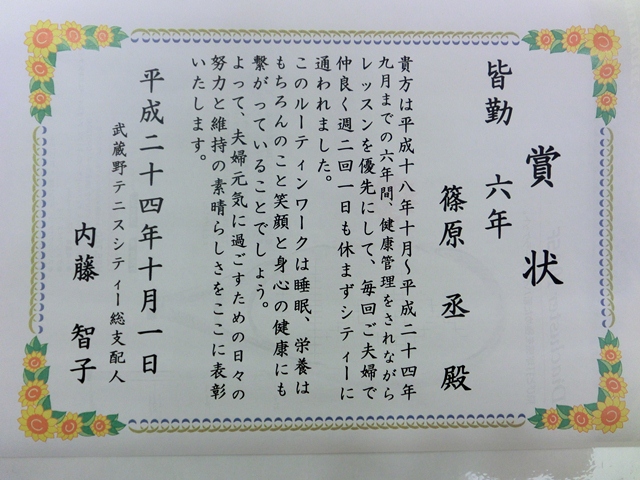 賞状
皆勤 六年
篠原 丞 殿
貴方は平成十八年十月~平成二十四年
九月までの六年間、健康管理をされながら
レッスンを優先にして、毎回ご夫婦で
仲良く週二回一日も休まずシティーに
通われました。
このルーティンワークは睡眠、栄養は
もちろんのこと笑顔と身心の健康にも
繋がっていることでしょう。
よって、夫婦元気に過ごすための日々の
努力と維持の素晴らしさをここに表彰
いたします。
平成二十四年十月一日
武蔵野テニスシティー総支配人
内藤 智子